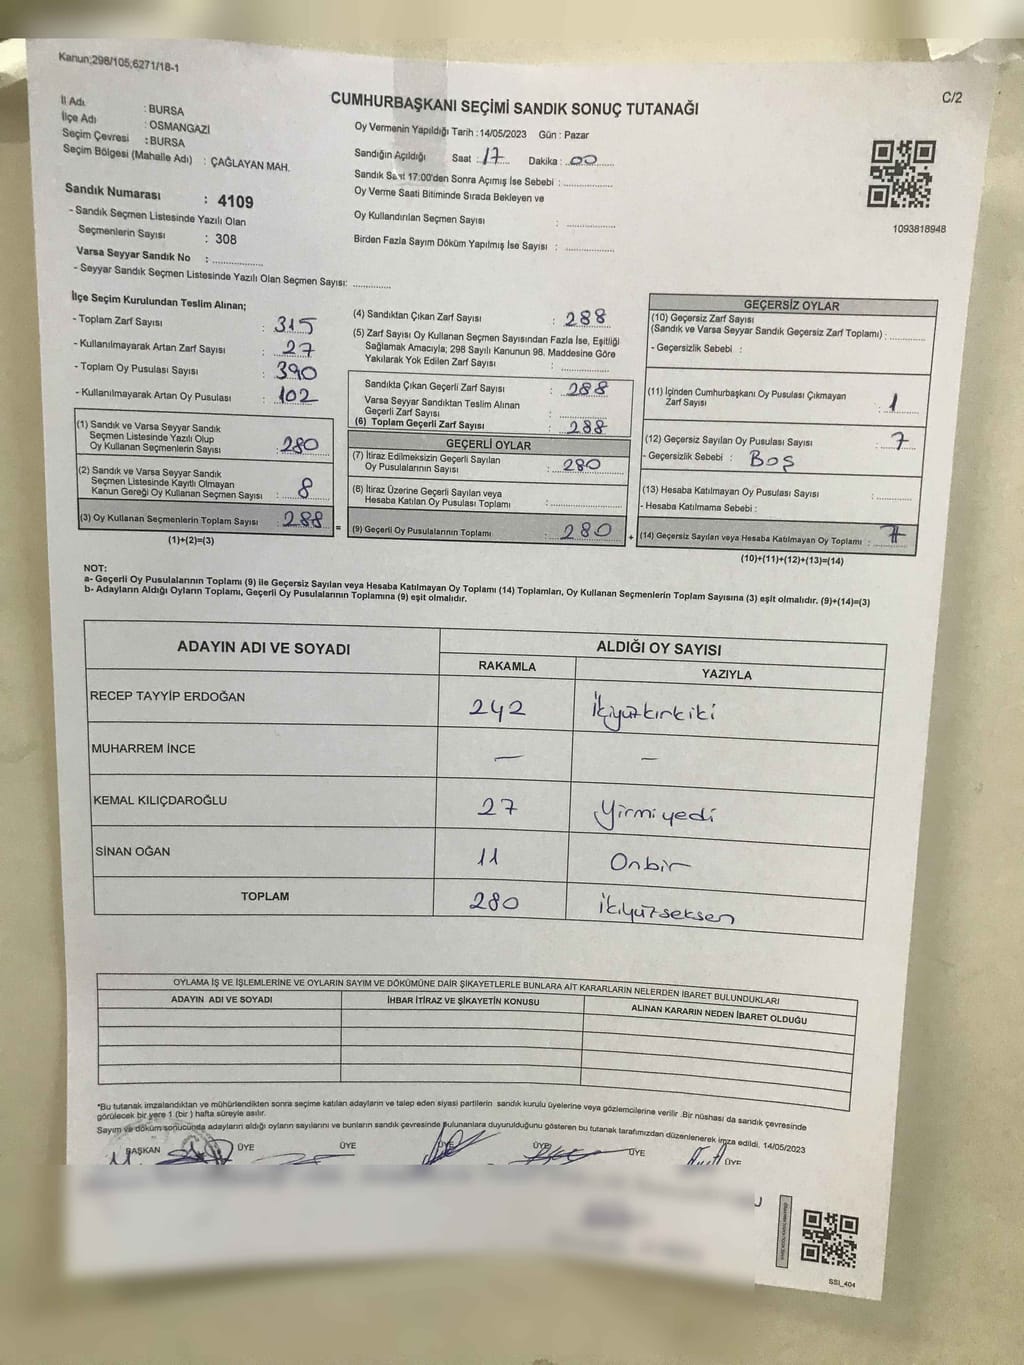 Kanun;298/105;6271/18-1
C/2
CUMHURBAŞKANI SEÇİMİ SANDIK SONUÇ TUTANAĞI
İl Adı : BURSA
İlçe Adı : OSMANGAZİ
Seçim Çevresi : BURSA
Seçim Bölgesi (Mahalle Adı) : ÇAĞLAYAN MAH.
Oy Vermenin Yapıldığı Tarih : 14/05/2023 Gün : Pazar
Sandığın Açıldığı Saat : 17 Dakika : 00
Sandık Saat 17:00'den Sonra Açımış İse Sebebi :
Oy Verme Saati Bitiminde Sırada Bekleyen ve
Oy Kullandırılan Seçmen Sayısı :
Birden Fazla Sayım Döküm Yapılmış İse Sayısı :
1093818948
Sandık Numarası : 4109
- Sandık Seçmen Listesinde Yazılı Olan
Seçmenlerin Sayısı : 308
Varsa Seyyar Sandık No :
- Seyyar Sandık Seçmen Listesinde Yazılı Olan Seçmen Sayısı:
İlçe Seçim Kurulundan Teslim Alınan;
- Toplam Zarf Sayısı : 315
- Kullanılmayarak Artan Zarf Sayısı : 27
- Toplam Oy Pusulası Sayısı : 390
- Kullanılmayarak Artan Oy Pusulası : 102
(1) Sandık ve Varsa Seyyar Sandık
Seçmen Listesinde Yazılı Olup
Oy Kullanan Seçmenlerin Sayısı : 280
(2) Sandık ve Varsa Seyyar Sandık
Seçmen Listesinde Kayıtlı Olmayan
Kanun Gereği Oy Kullanan Seçmen Sayısı : 8
(3) Oy Kullanan Seçmenlerin Toplam Sayısı : 288
(1)+(2)=(3)
(4) Sandıktan Çıkan Zarf Sayısı : 288
(5) Zarf Sayısı Oy Kullanan Seçmen Sayısından Fazla İse, Eşitliği
Sağlamak Amacıyla; 298 Sayılı Kanunun 98. Maddesine Göre
Yakılarak Yok Edilen Zarf Sayısı :
Sandıkta Çıkan Geçerli Zarf Sayısı : 288
Varsa Seyyar Sandıktan Teslim Alınan
Geçerli Zarf Sayısı :
(6) Toplam Geçerli Zarf Sayısı : 288
GEÇERLİ OYLAR
(7) İtiraz Edilmeksizin Geçerli Sayılan
Oy Pusulalarının Sayısı : 280
(8) İtiraz Üzerine Geçerli Sayılan veya
Hesaba Katılan Oy Pusulası Toplamı :
= (9) Geçerli Oy Pusulalarının Toplamı : 280 +
GEÇERSİZ OYLAR
(10) Geçersiz Zarf Sayısı
(Sandık ve Varsa Seyyar Sandık Geçersiz Zarf Toplamı) :
- Geçersizlik Sebebi :
(11) İçinden Cumhurbaşkanı Oy Pusulası Çıkmayan
Zarf Sayısı : 1
(12) Geçersiz Sayılan Oy Pusulası Sayısı : 7
- Geçersizlik Sebebi : Boş
(13) Hesaba Katılmayan Oy Pusulası Sayısı :
- Hesaba Katılmama Sebebi :
(14) Geçersiz Sayılan veya Hesaba Katılmayan Oy Toplamı :
(10)+(11)+(12)+(13)=(14)
NOT:
a- Geçerli Oy Pusulalarının Toplamı (9) ile Geçersiz Sayılan veya Hesaba Katılmayan Oy Toplamı (14) Toplamları, Oy Kullanan Seçmenlerin Toplam Sayısına (3) eşit olmalıdır. (9)+(14)=(3)
b- Adayların Aldığı Oyların Toplamı, Geçerli Oy Pusulalarının Toplamına (9) eşit olmalıdır.
ADAYIN ADI VE SOYADI
ALDIĞI OY SAYISI
RAKAMLA YAZIYLA
RECEP TAYYİP ERDOĞAN 242 İkiyüzkırkiki
MUHARREM İNCE — —
KEMAL KILIÇDAROĞLU 27 Yirmiyedi
SİNAN OĞAN 11 Onbir
TOPLAM 280 İkiyüzseksen
OYLAMA İŞ VE İŞLEMLERİNE VE OYLARIN SAYIM VE DÖKÜMÜNE DAİR ŞİKAYETLERLE BUNLARA AİT KARARLARIN NELERDEN İBARET BULUNDUKLARI
ADAYIN ADI VE SOYADI İHBAR İTİRAZ VE ŞİKAYETİN KONUSU ALINAN KARARIN NEDEN İBARET OLDUĞU
*Bu tutanak imzalandıktan ve mühürlendikten sonra seçime katılan adayların ve talep eden siyasi partilerin sandık kurulu üyelerine veya gözlemcilerine verilir .Bir nüshası da sandık çevresinde
görülecek bir yere 1 (bir ) hafta süreyle asılır.
Sayım ve döküm sonucunda adayların aldığı oyların sayılarını ve bunların sandık çevresinde bulunanlara duyurulduğunu gösteren bu tutanak tarafımızdan düzenlenerek imza edildi. 14/05/2023
BAŞKAN ÜYE ÜYE ÜYE ÜYE ÜYE ÜYE
SSİ_404